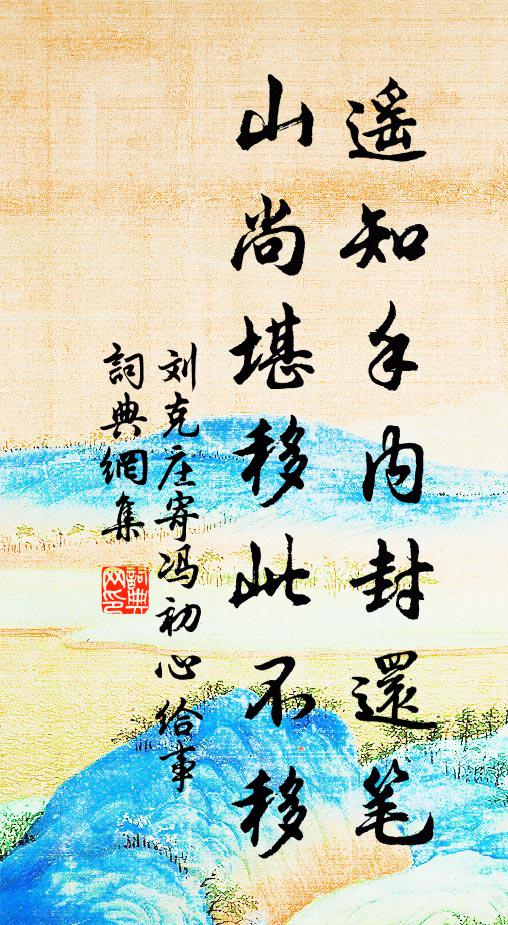 遥知手内封還笔
山尚堪移此不移
刘克庄寄冯初心给事
詞典網集
詞典
网印